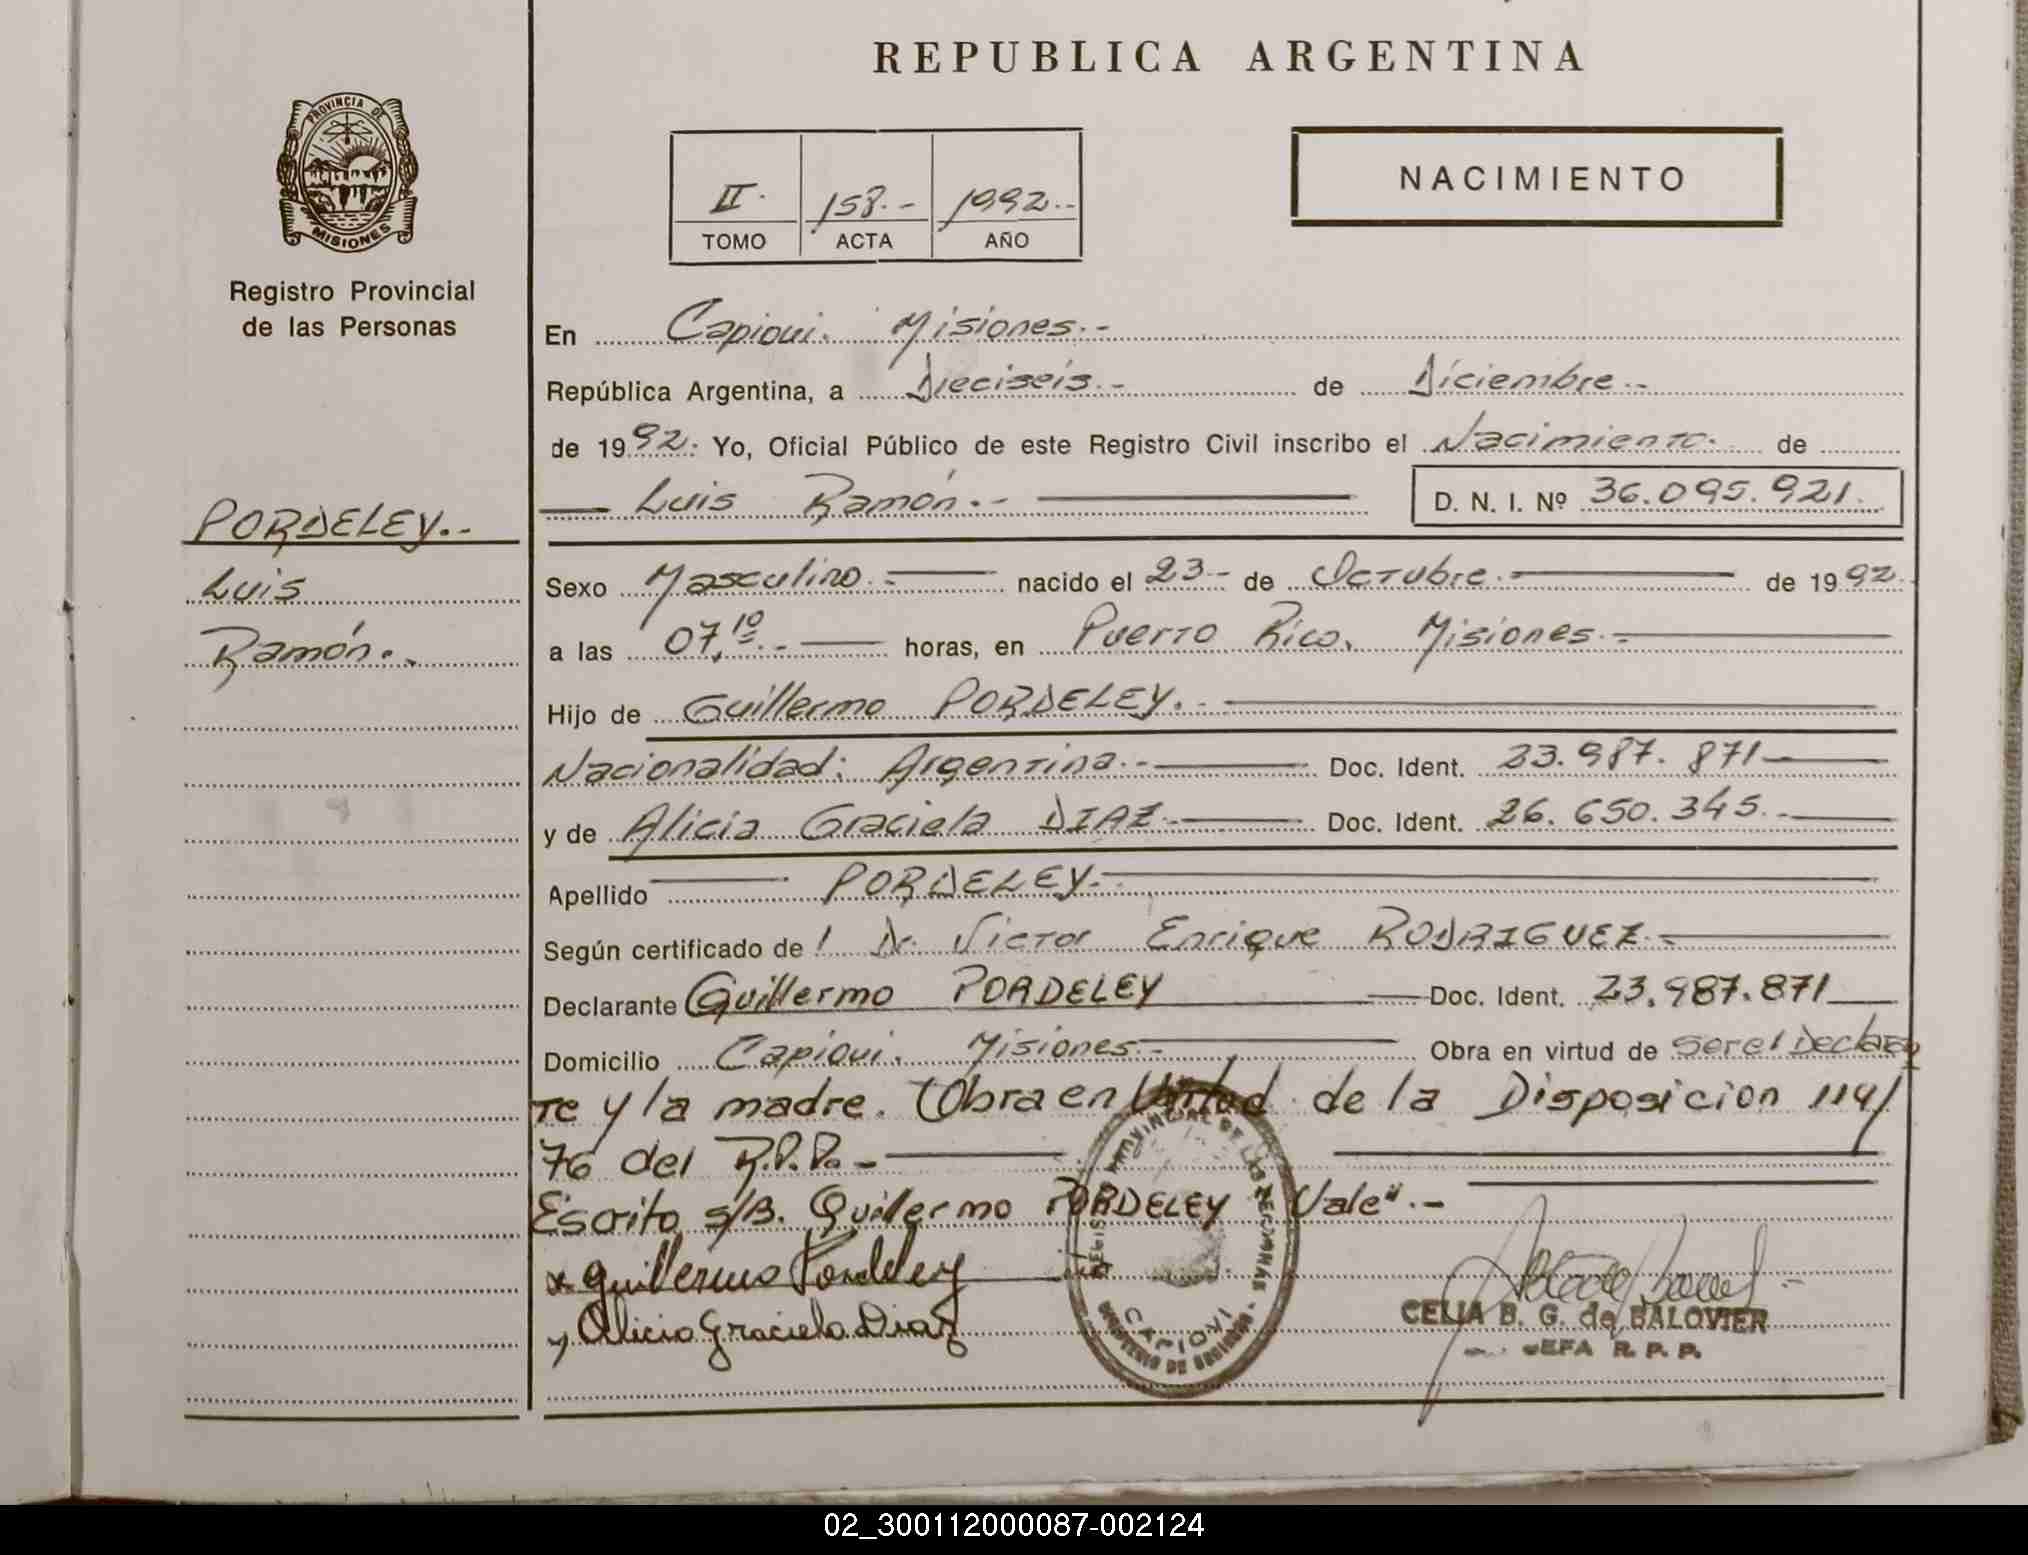 REPUBLICA ARGENTINA
PROVINCIA DE
MISIONES
Registro Provincial
de las Personas
II.
158.-
1992.-
TOMO ACTA AÑO
NACIMIENTO
En Capiovi. Misiones.-
República Argentina, a Dieciseis.- de Diciembre.-
de 1992. Yo, Oficial Público de este Registro Civil inscribo el Nacimiento. de
Luis Ramón.- D. N. I. Nº 36.095.921.
PORDELEY.-
Luis
Ramón.-
Sexo Masculino.- nacido el 23.- de Octubre.- de 1992.
a las 07,10.- horas, en Puerto Rico. Misiones.-
Hijo de Guillermo PORDELEY.-
Nacionalidad: Argentina.- Doc. Ident. 23.987.871
y de Alicia Graciela DIAZ.- Doc. Ident. 26.650.345.-
Apellido PORDELEY.-
Según certificado de Dr. Victor Enrique RODRIGUEZ.-
Declarante Guillermo PORDELEY Doc. Ident. 23.987.871
Domicilio Capiovi. Misiones.- Obra en virtud de ser el Declaran
te y la madre. Obra en Virtud de la Disposicion 114/
76 del R.P.P.-
Escrito s/B. Guillermo PORDELEY Vale".-
x Guillermo Pordeley
y Alicia Graciela Diaz
PROVINCIAL DE LAS PERSONAS
CAPIOVI
CELIA B. G. de BALOVIER
JEFA R. P. P.
02_300112000087-002124